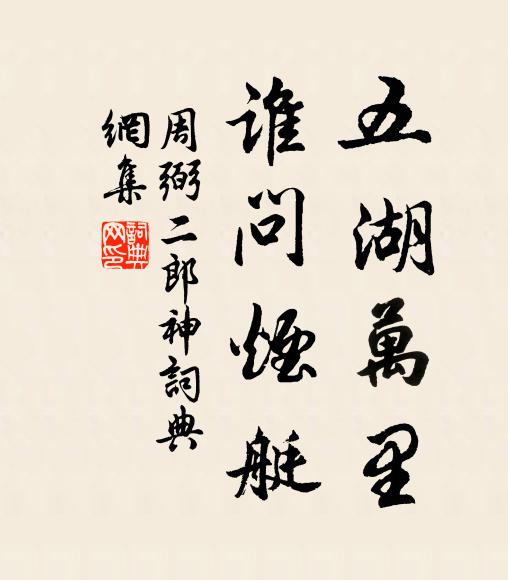 五湖萬里
誰問煙艇
周弼二郎神詞典
網集
詞典
网印